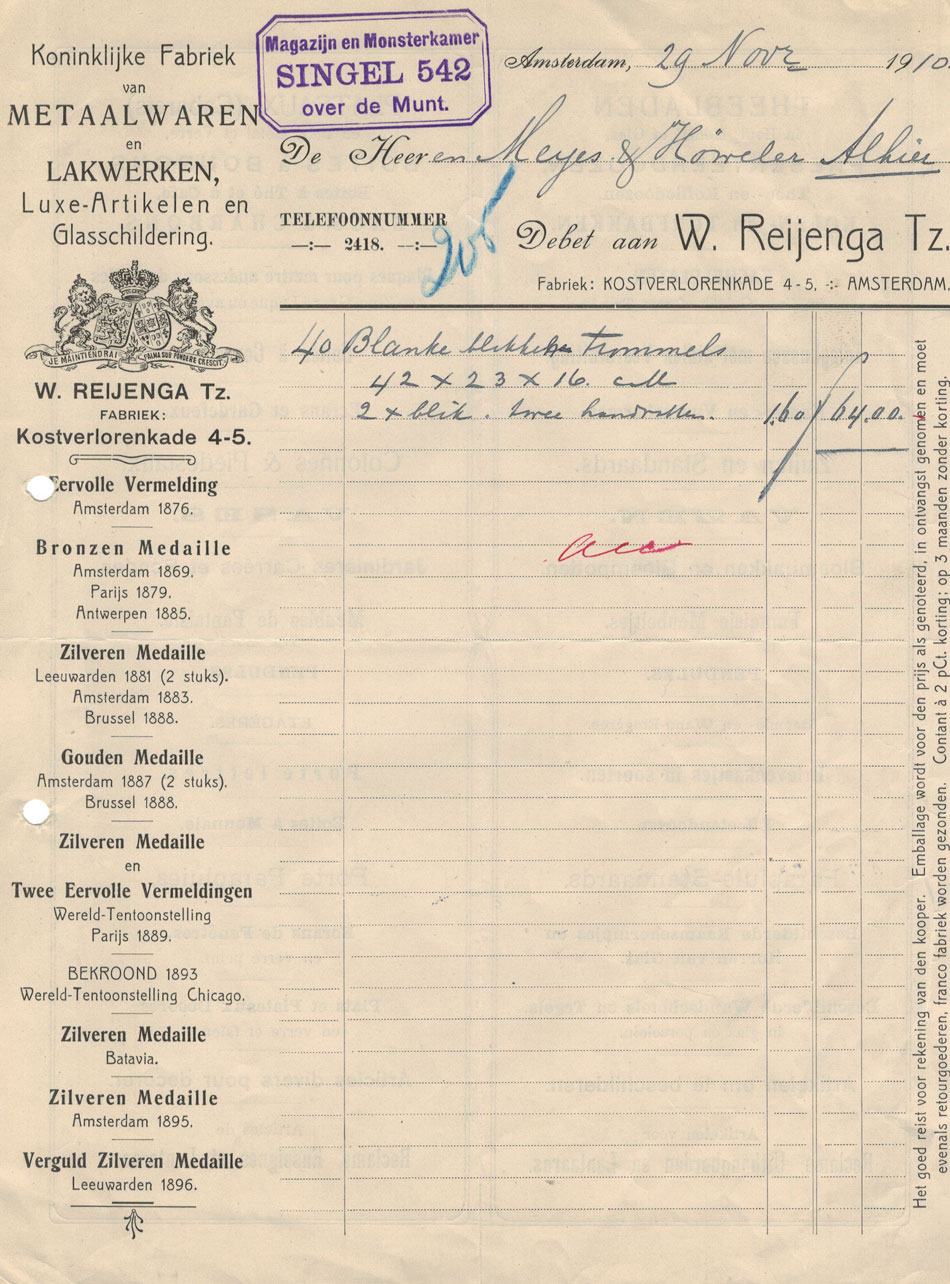 Koninklijke Fabriek
van
METAALWAREN
en
LAKWERKEN,
Luxe-Artikelen en
Glasschildering.
JE MAINTIENDRAI
PALMA SUB PONDERE CRESCIT.
W. REIJENGA Tz.
FABRIEK:
Kostverlorenkade 4-5.
Eervolle Vermelding
Amsterdam 1876.
Bronzen Medaille
Amsterdam 1869.
Parijs 1879.
Antwerpen 1885.
Zilveren Medaille
Leeuwarden 1881 (2 stuks).
Amsterdam 1883.
Brussel 1888.
Gouden Medaille
Amsterdam 1887 (2 stuks).
Brussel 1888.
Zilveren Medaille
en
Twee Eervolle Vermeldingen
Wereld-Tentoonstelling
Parijs 1889.
BEKROOND 1893
Wereld-Tentoonstelling Chicago.
Zilveren Medaille
Batavia.
Zilveren Medaille
Amsterdam 1895.
Verguld Zilveren Medaille
Leeuwarden 1896.
Magazijn en Monsterkamer
SINGEL 542
over de Munt.
Amsterdam, 29 Novr 1910.
De Heeren Meyes & Höweler Alhier
TELEFOONNUMMER
—:— 2418. —:—
Debet aan W. Reijenga Tz.
Fabriek: KOSTVERLORENKADE 4-5. -:- AMSTERDAM.
40 Blanke blikken Trommels
42 x 23 x 16. cM
2 x blik. twee handvatten. 1.60 64.00.
acc
Het goed reist voor rekening van den kooper. Emballage wordt voor den prijs als genoteerd, in ontvangst genomen en moet
evenals retourgoederen, franco fabriek worden gezonden. Contant à 2 pCt. korting; op 3 maanden zonder korting.